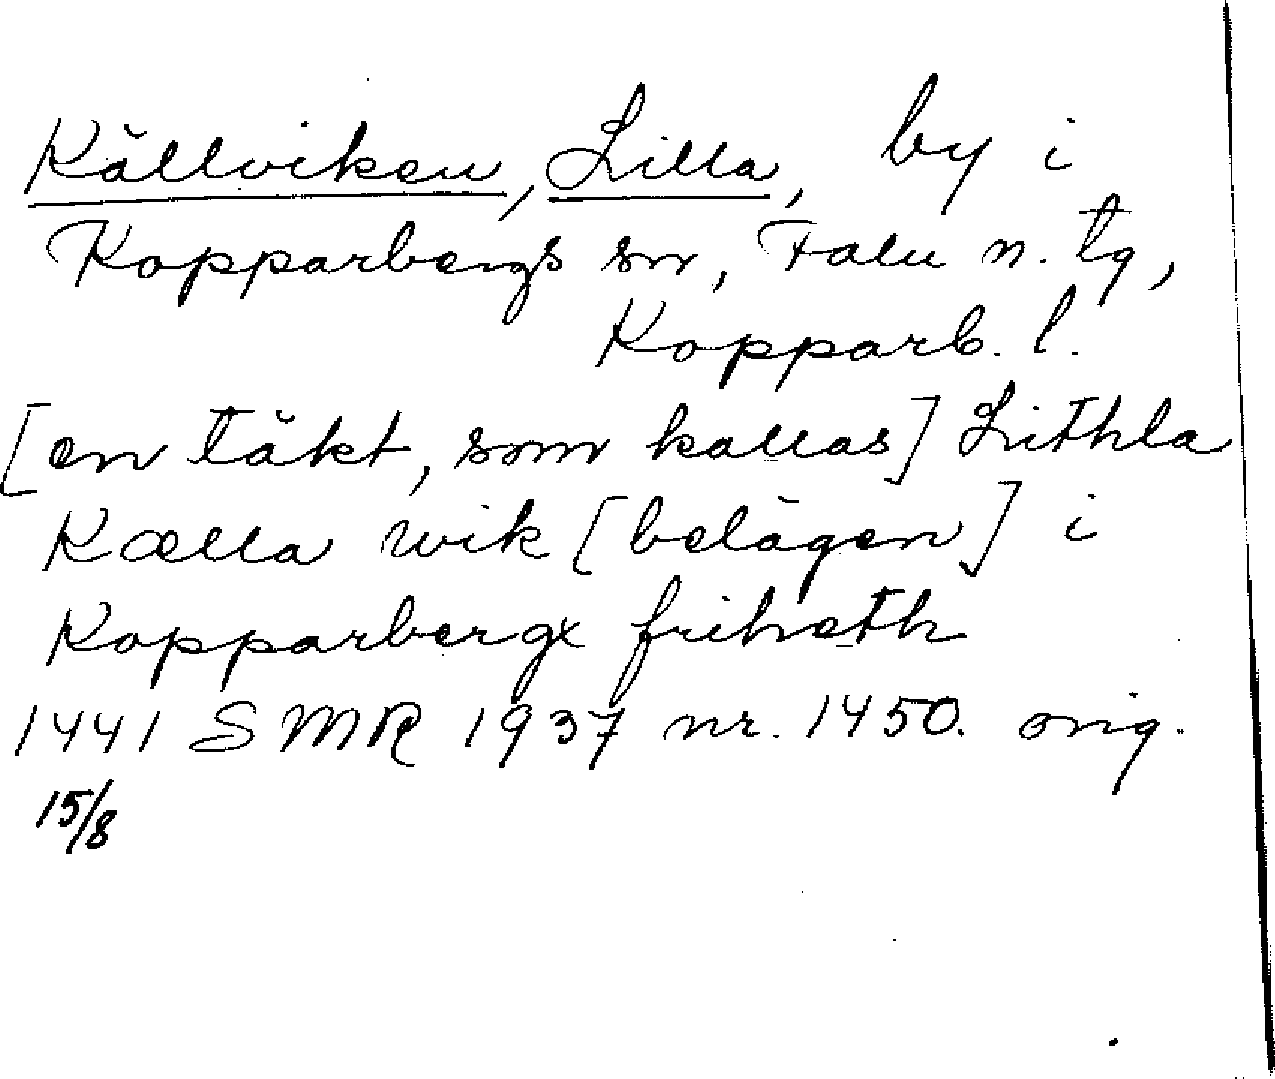 Källviken, Lilla, by i
Kopparbergs sn, Falu n. tg,
Kopparb. l.
[en täkt, som kallas] Lithla
Kælla wik [belägen] i
Kopparbergx friheth
1441 SMR 1937 nr. 1450. orig.
15/8